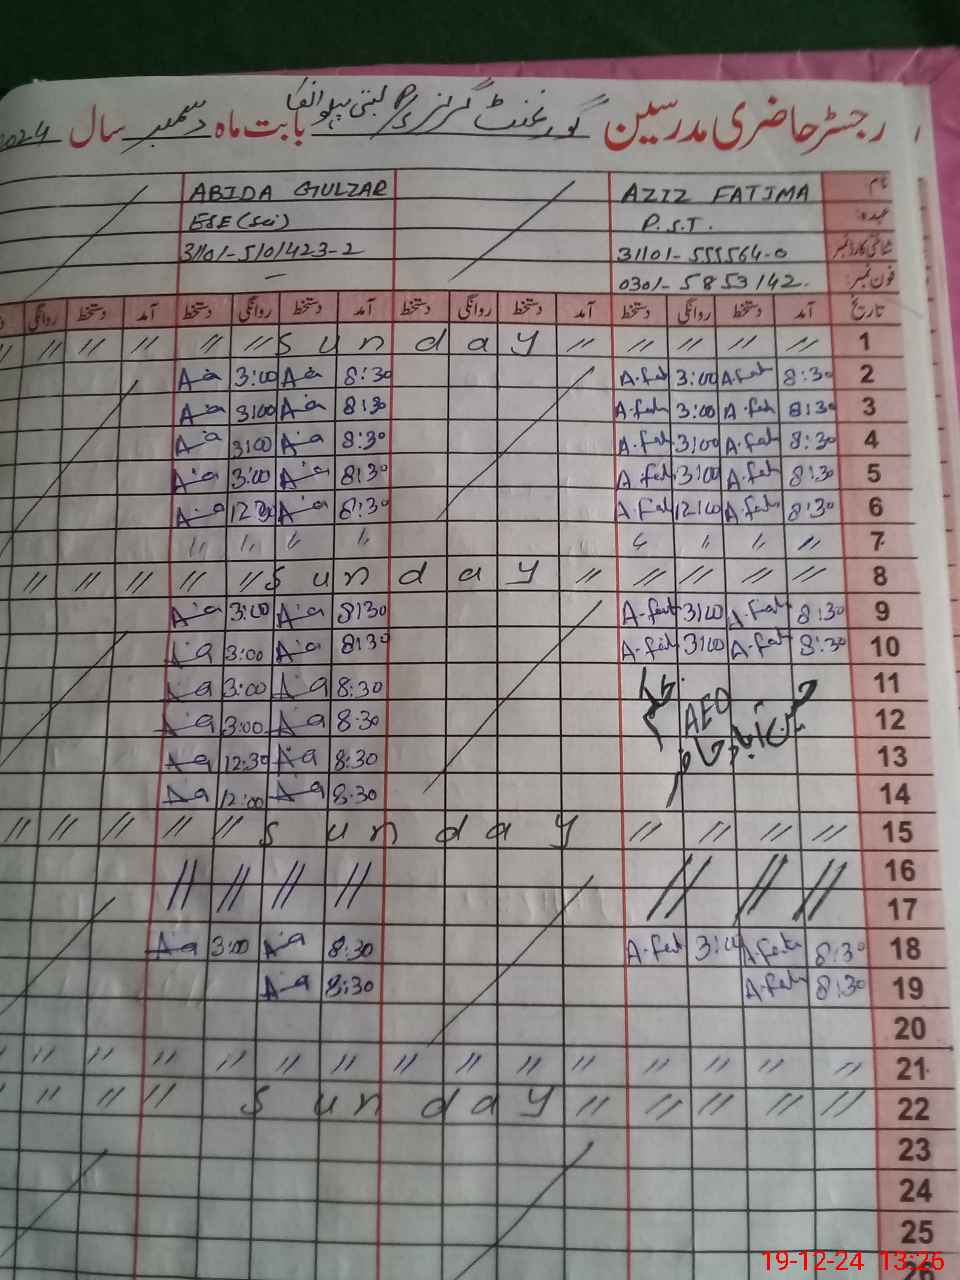 رجسٹر حاضری مدرسین گورنمنٹ گرلز P/S بستی بابت ماہ دسمبر سال 2024
نام AZIZ FATIMA ABIDA GULZAR
عہدہ: P.S.T. ESE (Sci)
شناختی کارڈ نمبر 31101-555564-0 31101-5101423-2
فون نمبر: 0301-5853142. —
تاریخ آمد دستخط روانگی دستخط آمد دستخط روانگی دستخط آمد دستخط روانگی دستخط آمد دستخط روانگی
1 〃 〃 〃 〃 〃 Sunday 〃 〃 〃 〃 〃 〃
2 8:30 A.fat 3:00 A.fat 8:30 3:00
3 8:30 A.fat 3:00 A.fat 8:30 3:00
4 8:30 A.fat 3:00 A.fat 8:30 3:00
5 8:30 A.fat 3:00 A.fat 8:30 3:00
6 8:30 A.fat 12:00 A.fat 8:30
7 〃 〃 〃 〃 〃 〃 〃 〃
8 〃 〃 〃 〃 〃 Sunday 〃 〃 〃 〃 〃 〃
9 8:30 A.fat 3:00 A.fat 8:30 3:00
10 8:30 A.fat 3:00 A.fat 8:30 3:00
11 8:30 3:00
12 AEO 8:30 3:00
13 8:30 12:30
14 8:30 12:00
15 〃 〃 〃 〃 Sunday 〃 〃 〃 〃 〃
16
17
18 8:30 A.fat 3:00 A.fat 8:30 3:00
19 8:30 A.fat 8:30
20
21 〃 〃 〃 〃 〃 〃 〃 〃 〃 〃 〃 〃 〃
22 〃 〃 〃 〃 〃 Sunday 〃 〃 〃
23
24
25
19-12-24 13:26